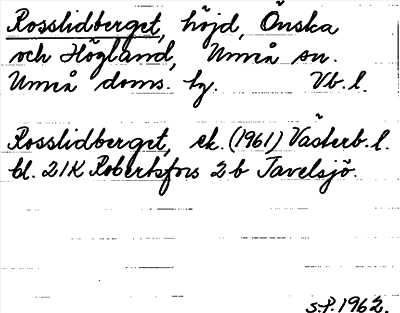 Rosslidberget, höjd, Önska
och Högland, Umeå sn.
Umeå doms. hg. Vb.l.
Rosslidberget, ek. (1961) Västerb.l.
bl. 21K Robertsfors 2b Tavelsjö.
S.P. 1962.